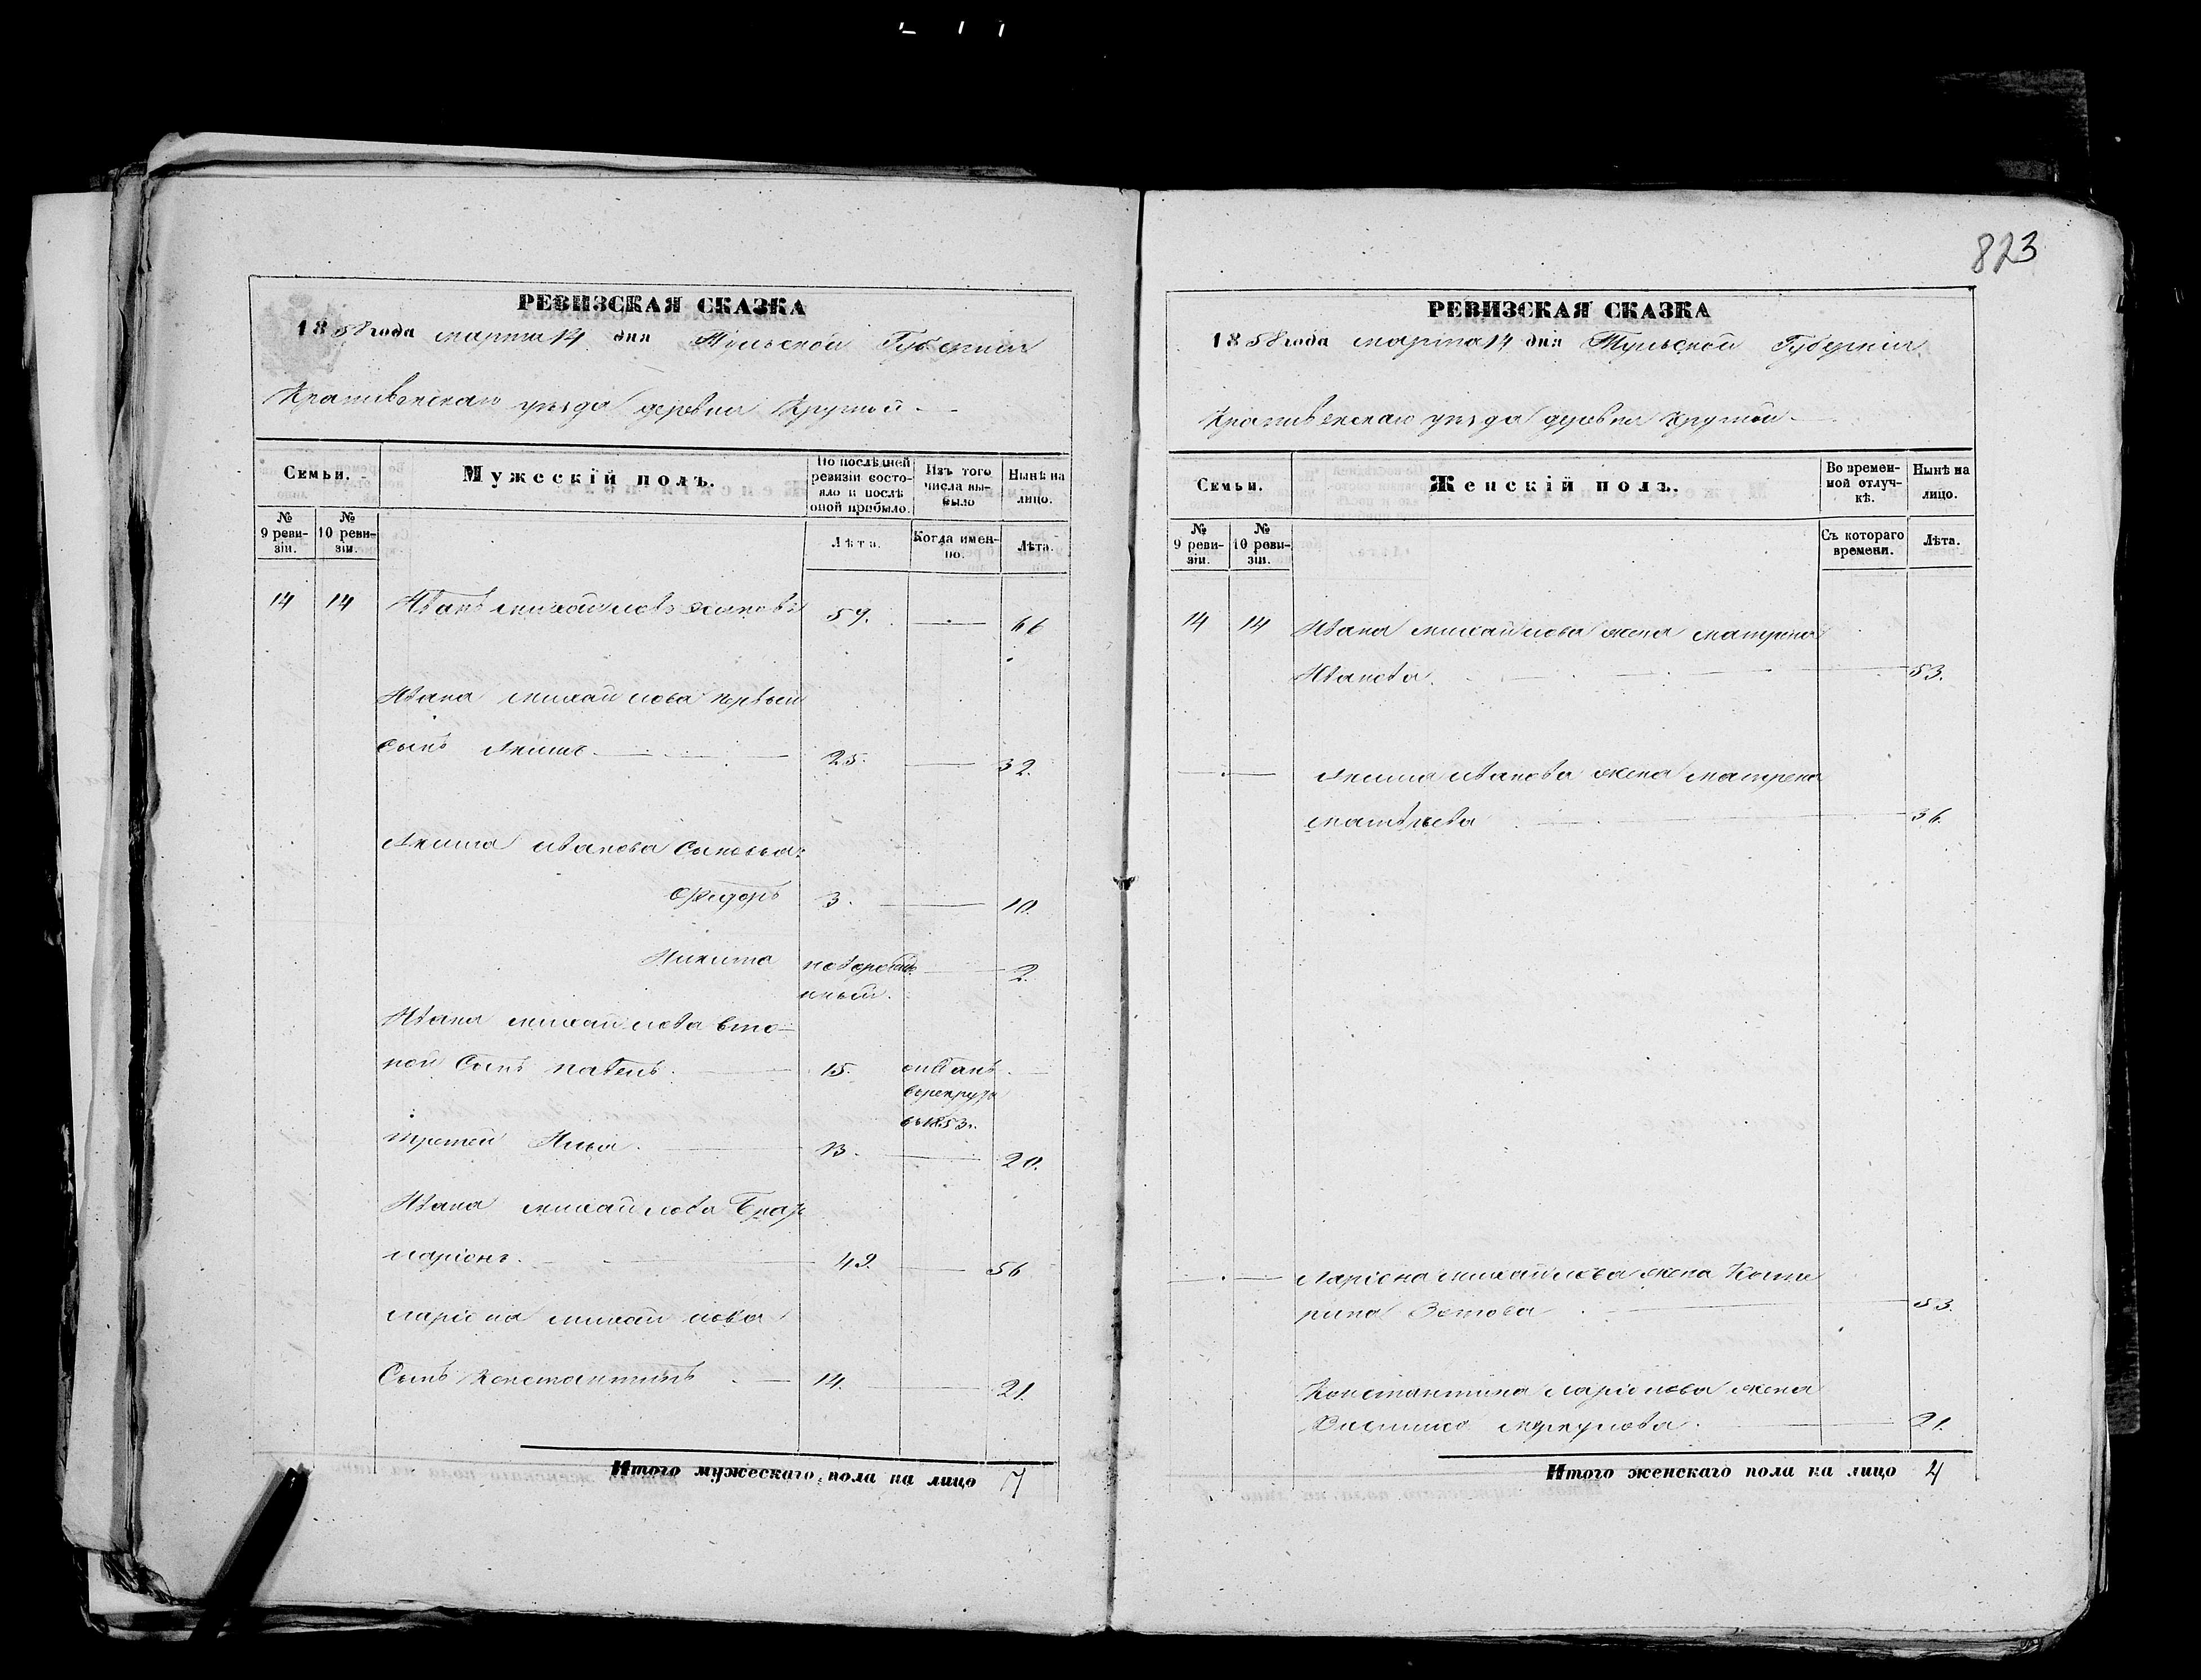 РЕВИЗСКАЯ СКАЗКА
1858 года марта 14 дня Тульской Губерніи
Крапивенскаго уѣзда деревни Крутой
Семьи.
Мужескій полъ.
По послѣдней ревизіи состояло и послѣ оной прибыло.
Изъ того числа выбыло
Нынѣ на лицо.
№ 9 ревизіи.
№ 10 ревизіи.
Лѣта.
Когда именно.
Лѣта.
14 14 Иванъ Михайловъ 59. 66
Ивана Михайлова первый
сынъ Акимъ 25. 32.
Акима Иванова сыновья:
Ѳедоръ 3. 10.
Никита новорожденный. 2.
Ивана Михайлова вто-
рой Сынъ Павелъ. 15. отданъ
в рекруты
въ 1853 г.
третей Илья. 13. 20.
Ивана Михайлова Брат
Ларіонъ. 49. 56
Ларіона Михайлова
Сынъ Константинъ 14. 21.
Итого мужескаго пола на лицо 7
823
РЕВИЗСКАЯ СКАЗКА
1858 года марта 14 дня Тульской Губерніи
Крапивенскаго уѣзда деревни Крутой
Семьи.
Женскій полъ.
Во временной отлучкѣ.
Нынѣ на лицо.
№ 9 ревизіи.
№ 10 ревизіи.
Съ котораго времени.
Лѣта.
14 14 Ивана Михайлова жена Матрена
Иванова. 53.
Акима Иванова жена Матрена
Матвѣева 36.
Ларіона Михайлова жена Кате
рина Зотова 53.
Константина Ларіонова жена
Меркулова. 21.
Итого женскаго пола на лицо 4